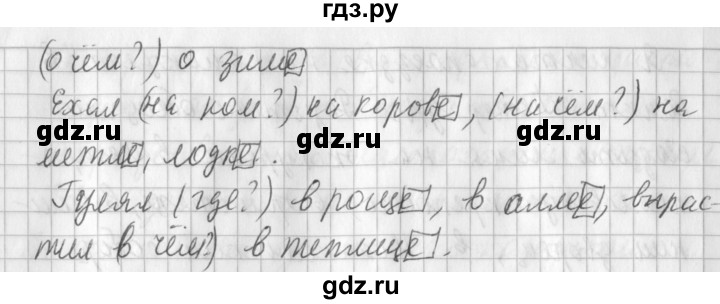 гдз.ру
(о чём?) о зиме
Ехал (на ком?) на корове, (на чём?) на
метле, лодке.
Гулял (где?) в роще, в аллее, вырас-
тил (в чём?) в теплице.
gdz.ru
gdz.ru
gdz.ru
gdz.ru
gdz.ru
gdz.ru
gdz.ru